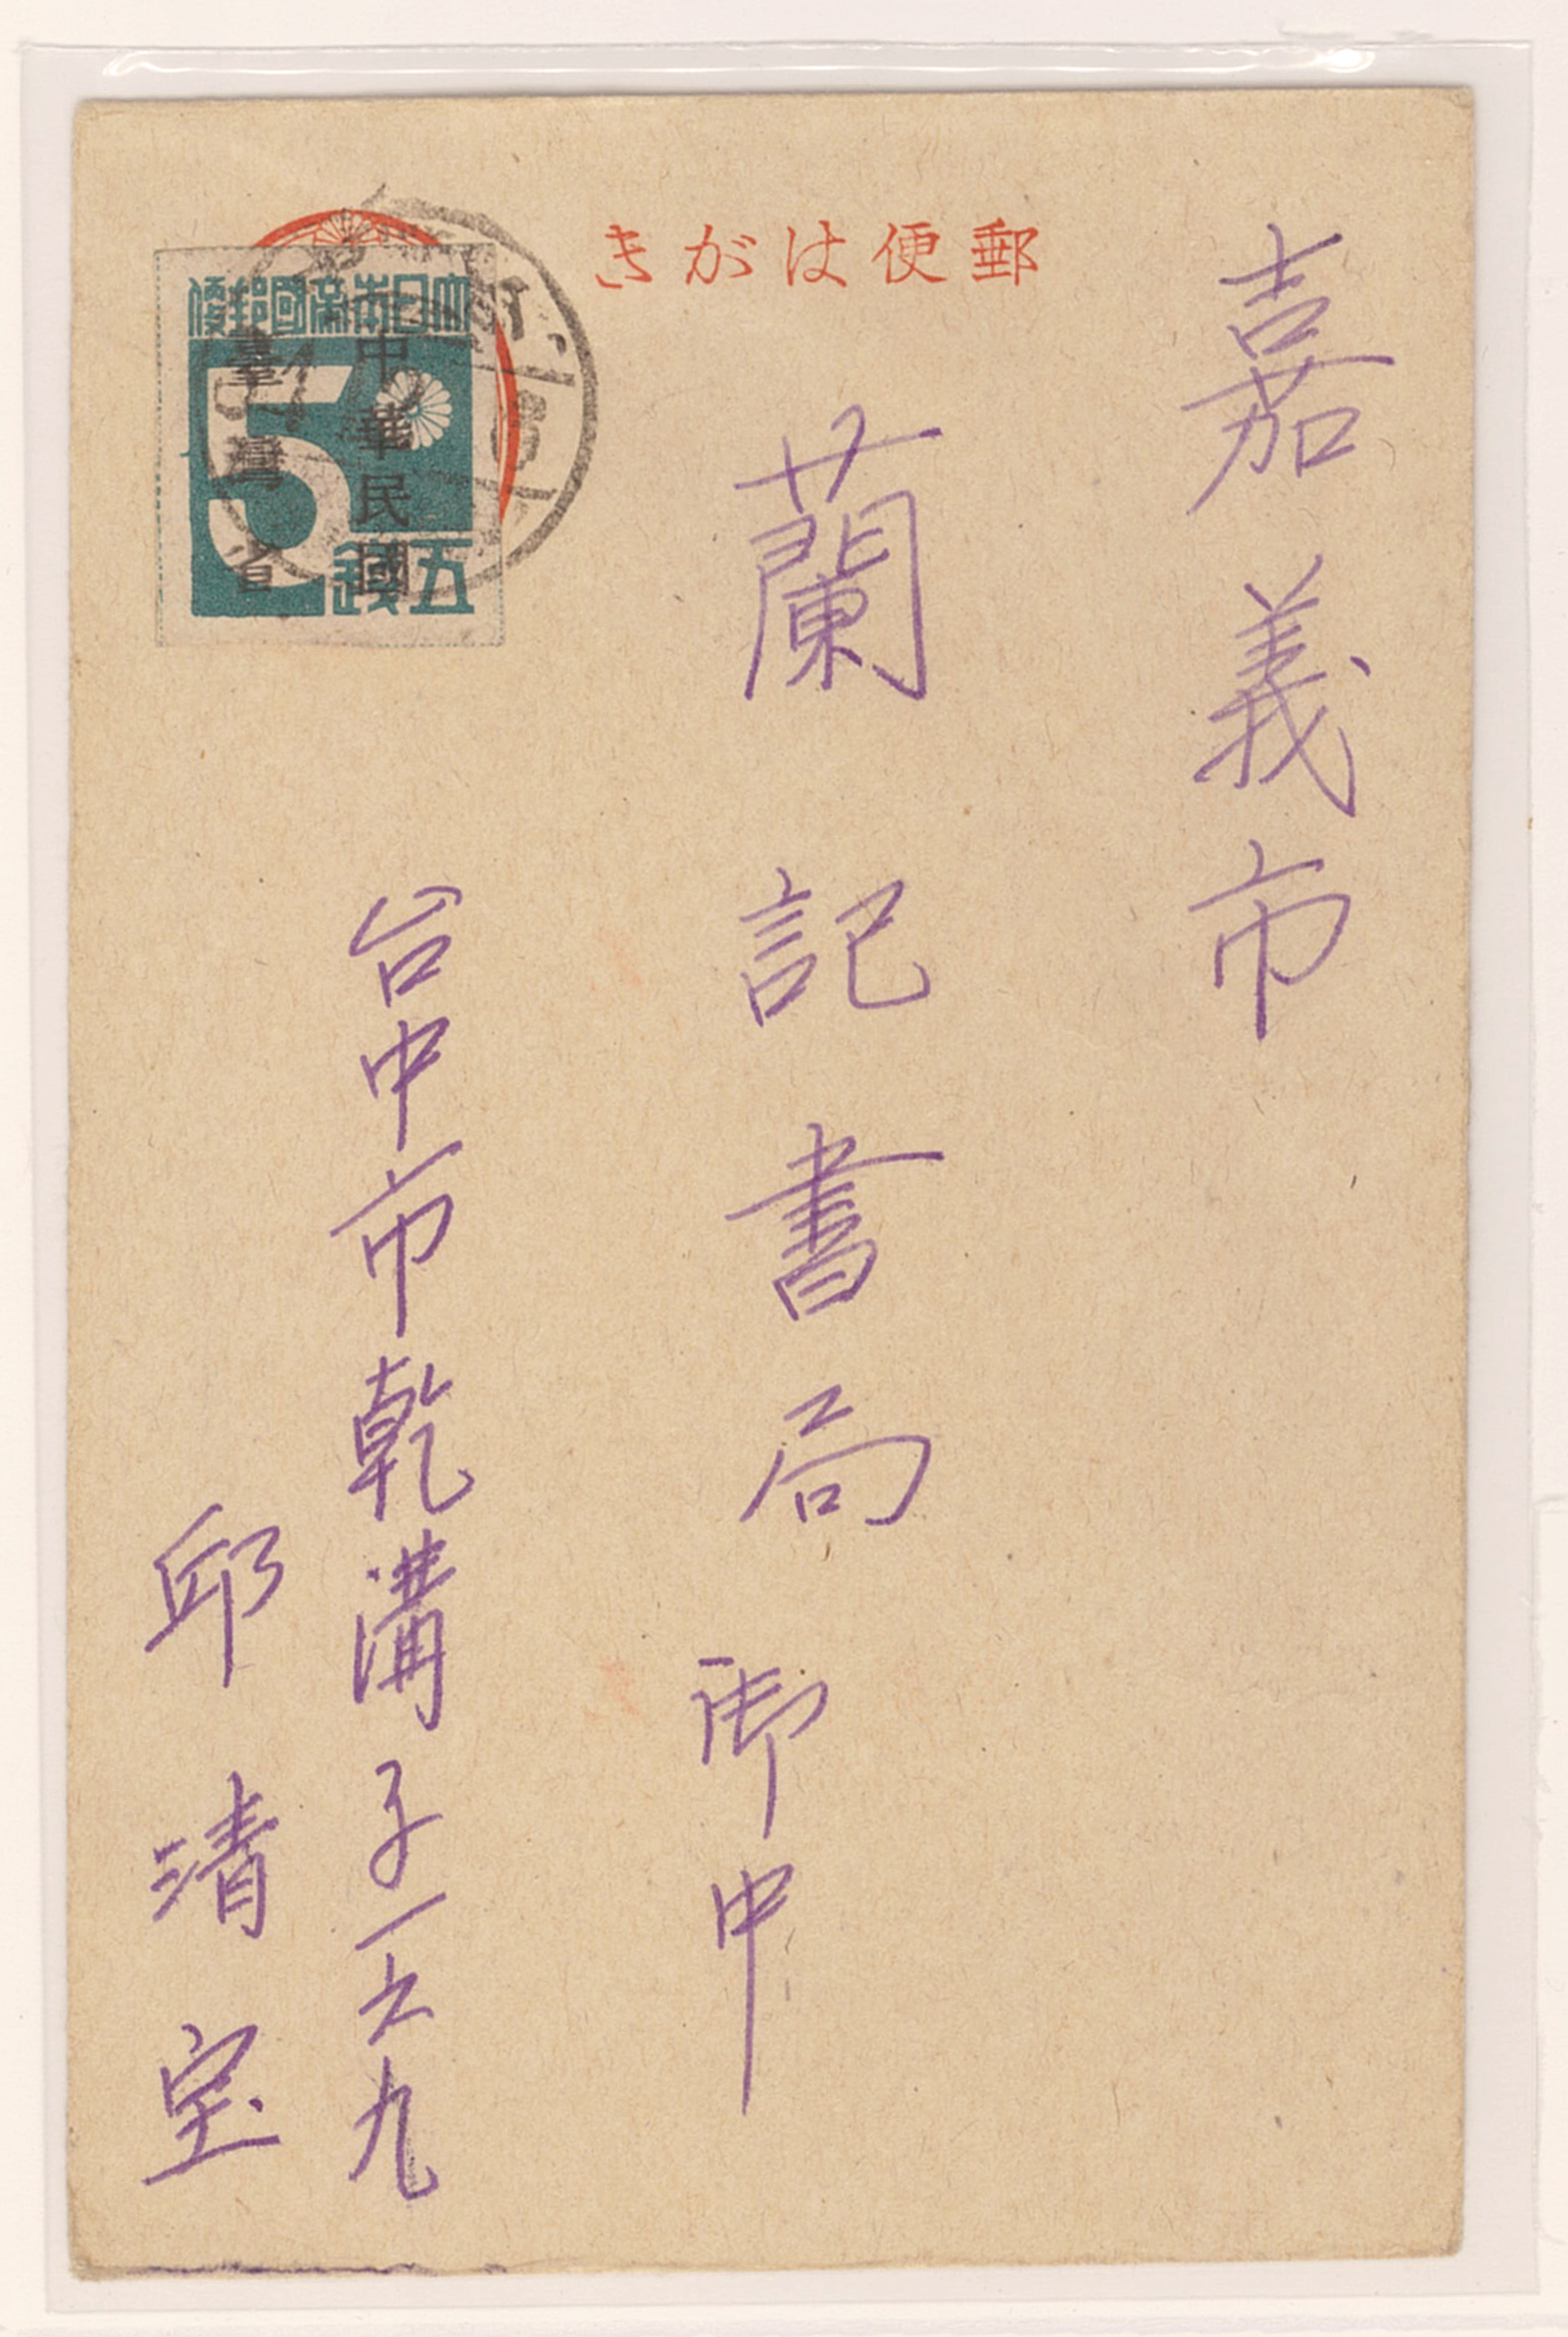 郵便はがき
大日本帝國郵便
中華民國
臺灣省
5
五錢
嘉義市
蘭記書局 御中
台中市乾溝子一六九
邱清宝